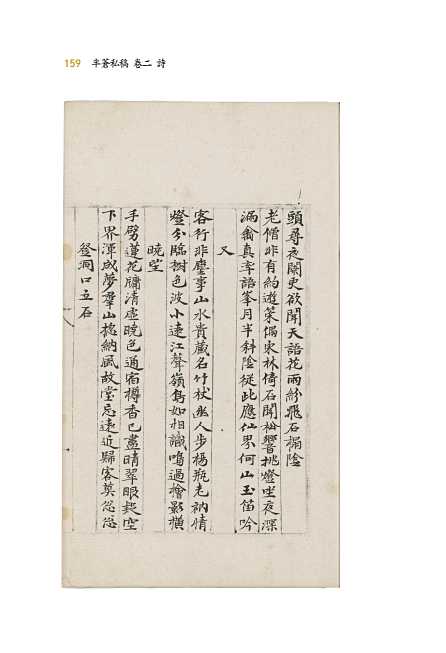 159 半蒼私稿 卷二 詩
頭尋夜闌更欲聞天語花雨紛飛石榻陰
老僧非有約遊策偶東林倚石聞松響挑燈坐夜深
漏禽真率語峯月半斜陰從此應仙界何山玉笛吟
又
客行非塵事山水貴藏名竹杖幽人步楊瓶老衲情
燈分臨樹色波小遠江聲嶺鳥如相識鳴過檜影橫
曉坐
手劈蓮花牖清虛曉色通宿樽香已盡晴翠眼起空
下界渾成夢羣山摠納風故堂忘遠近歸客莫怱怱
登洞口立石